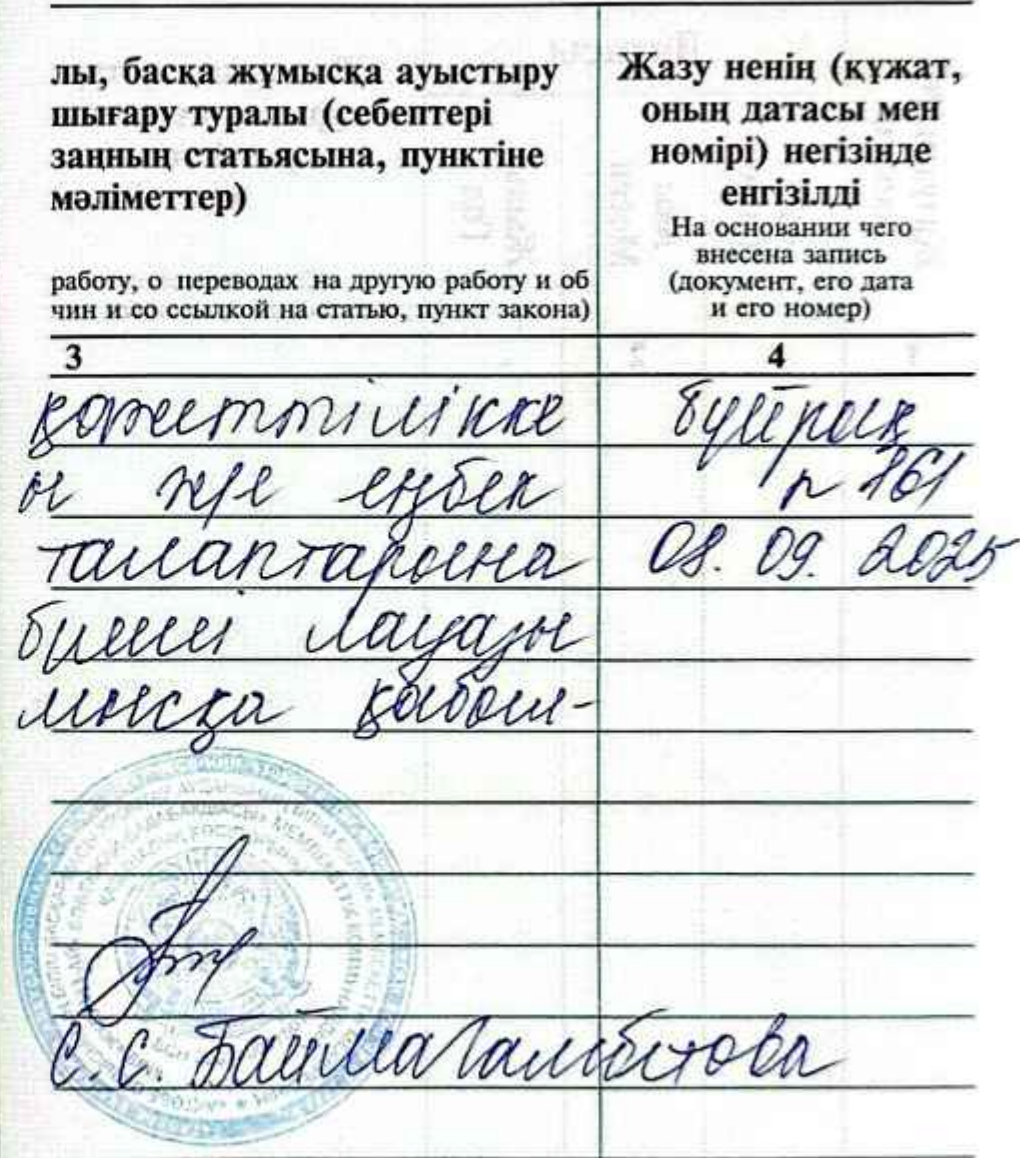 лы, басқа жұмысқа ауыстыру
шығару туралы (себептері
заңның статьясына, пунктіне
мәліметтер)
работу, о переводах на другую работу и об
чин и со ссылкой на статью, пункт закона)
Жазу ненің (құжат,
оның датасы мен
номірі) негізінде
енгізілді
На основании чего
внесена запись
(документ, его дата
и его номер)
3 4
қажеттілікке бұйрық
ы және еңбек № 161
талаптарына 08. 09. 2025
бішші лауазы
мысқа қабыл-
С.С. Баймагамбетова